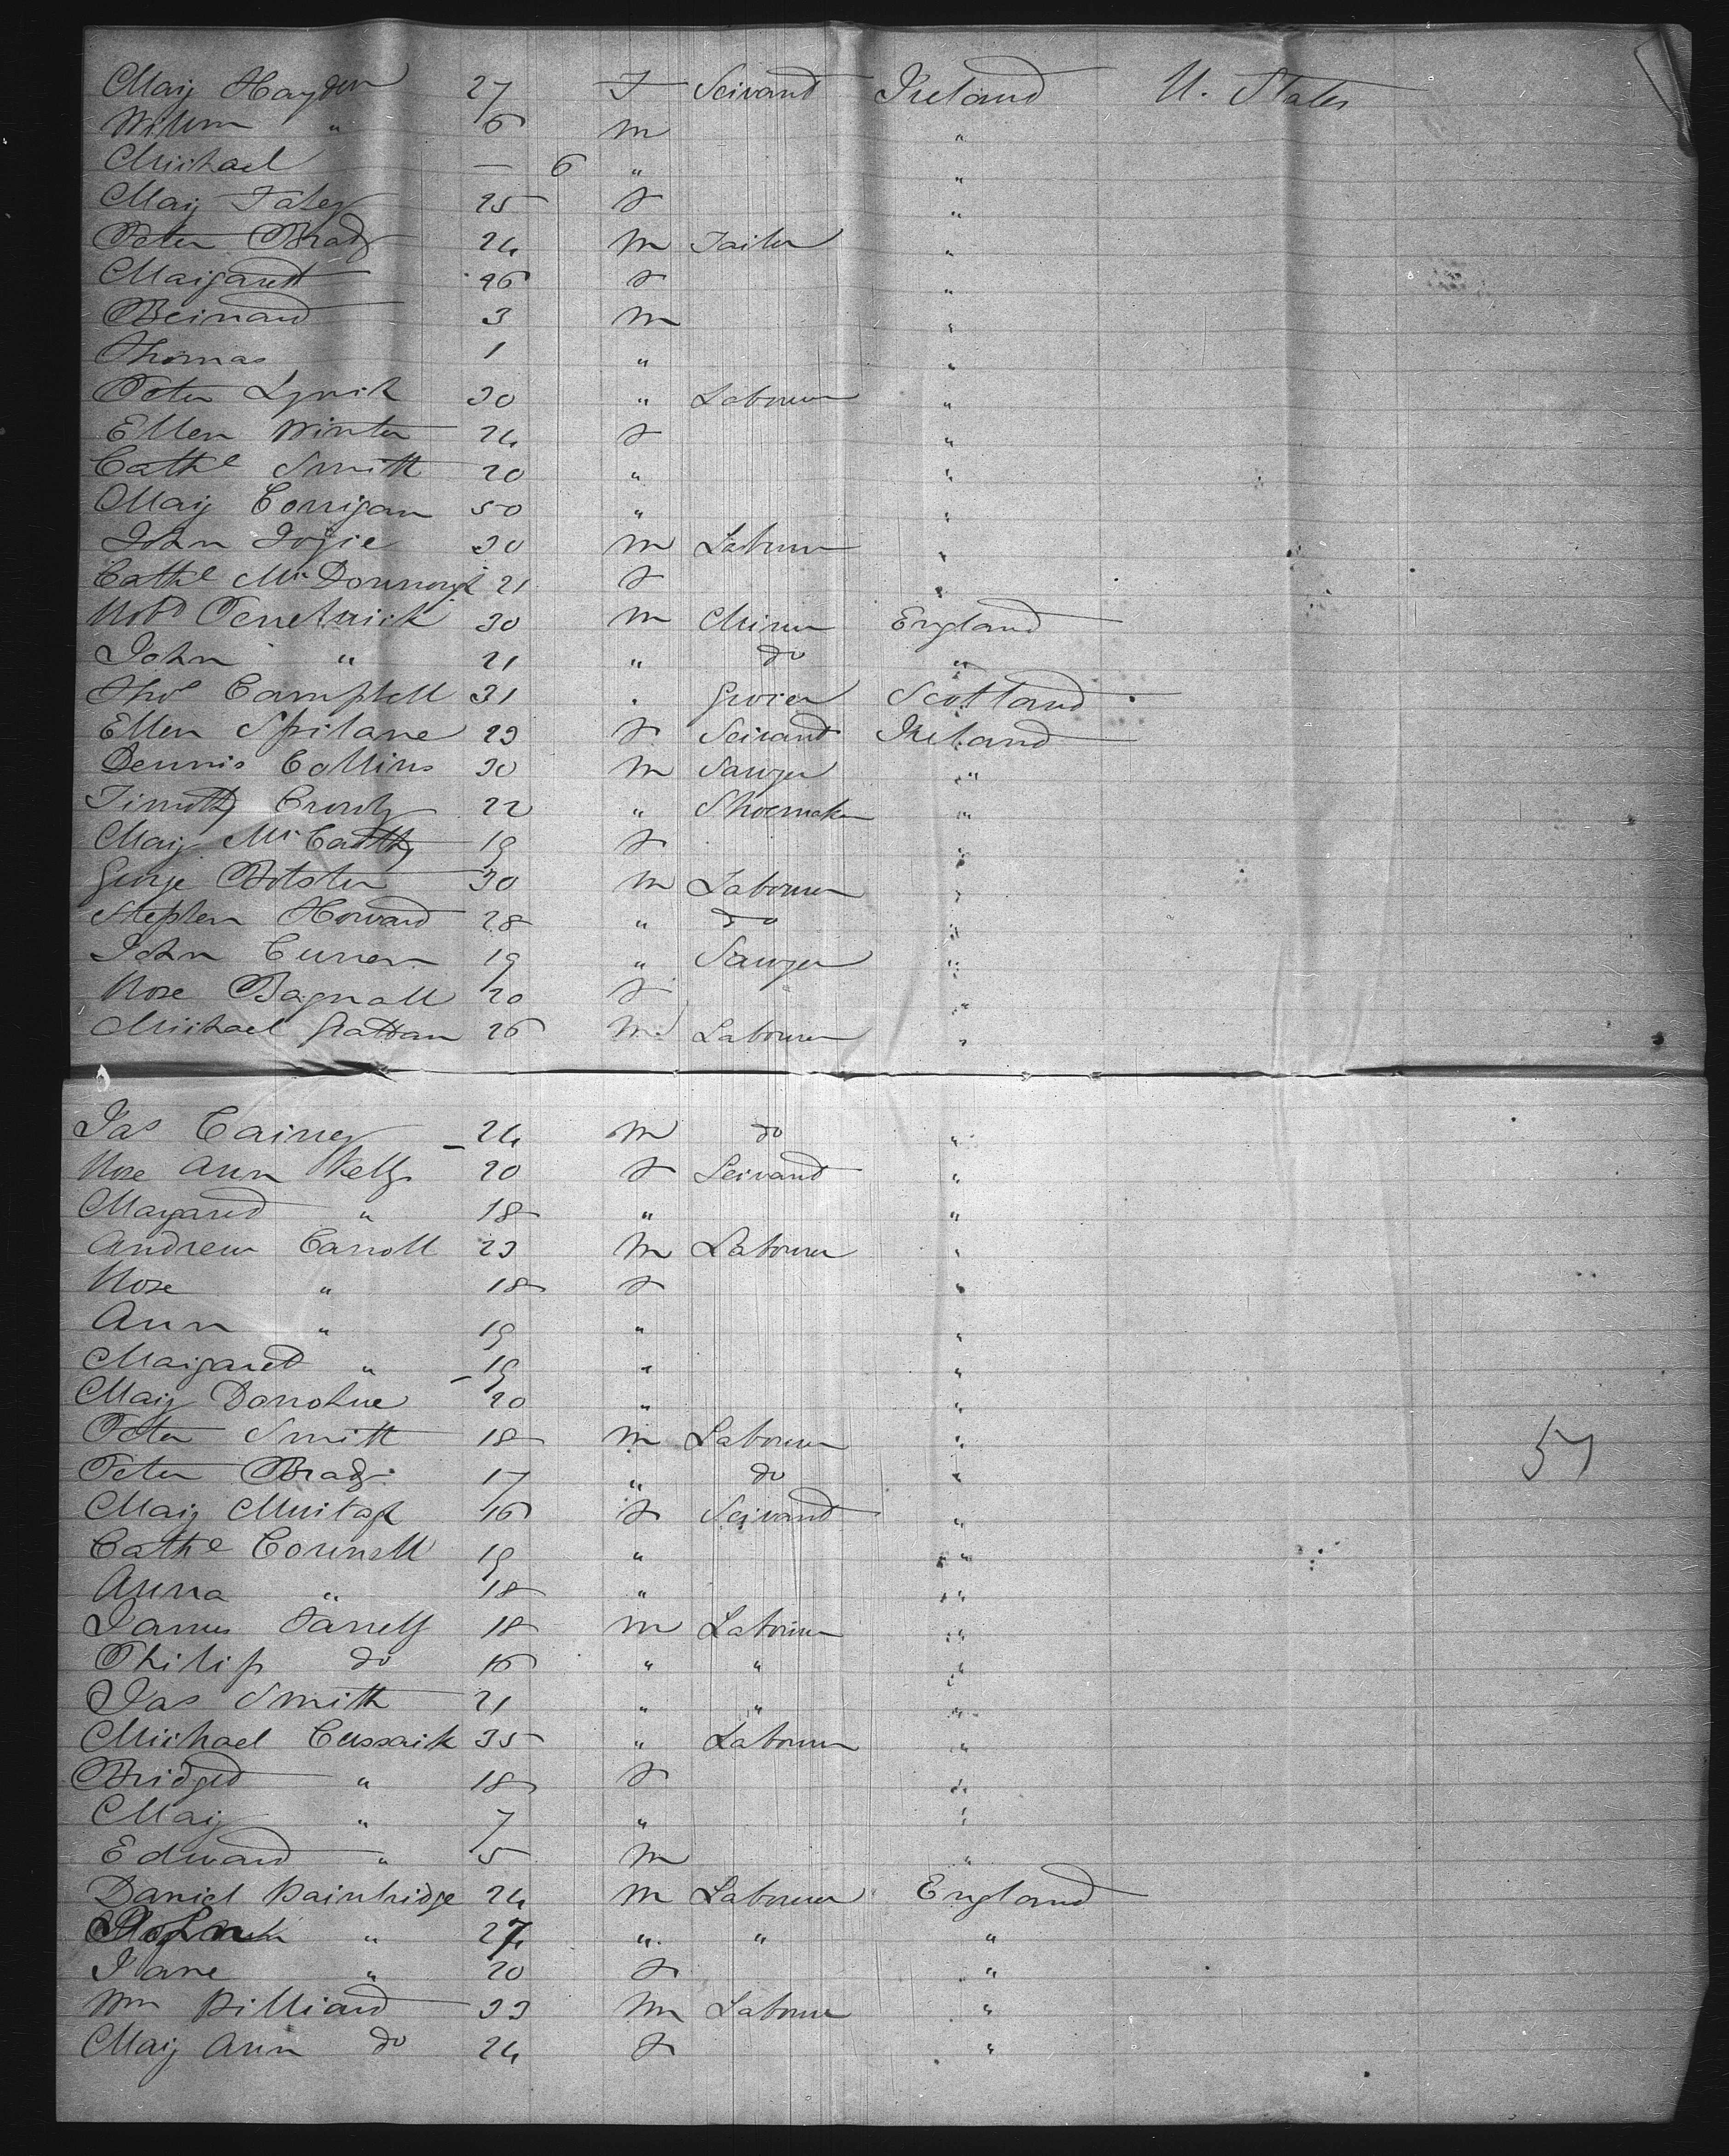 Mary Hayden 27 F Servant Ireland U. States
Willm " 6 m "
Michael — 6 " "
Mary Foley 25 F "
Peter Brady 24 m Tailor "
Margarett 26 F "
Bernard 3 m "
Thomas 1 " "
Peter Lynch 30 " Labourer "
Ellen Winter 24 F "
Cathe Smith 20 " "
Mary Corrigan 50 " "
John 30 m Labourer "
Cathe McDonnough 21 F "
Robt 30 m Miner England
John " 21 " do "
Thos Campbell 31 " Grocer Scotland
Ellen Spilane 23 F Servant Ireland
Dennis Collins 30 m Sawyer "
Timothy Crowly 22 " Shoemaker "
Mary McCarthy 19 F "
George 30 m Labourer "
Stephen Howard 28 " do "
John Curren 19 " Sawyer "
Rose Bagnall 20 F "
Michael Grattan 26 m Labourer "
Jas Cairney 24 m do "
Rose Ann Kelly 20 F Servant "
Margaret " 18 " "
Andrew Carroll 23 m Labourer "
Rose " 18 F "
Ann " 19 " "
Margaret " 19 " "
Mary Donohue 20 " "
Peter Smith 18 m Labourer "
Peter Brady 17 " do "
51
Mary Murtagh 16 F Servant "
Cathe Connell 19 " "
Anna " 18 " "
James Farrelly 18 m Labourer "
Philip do 16 " " "
Jas Smith 21 " " "
Michael Cussack 35 " Labourer "
Bridget " 18 F "
Mary " 7 " "
Edward " 5 m "
Daniel Bainbridge 24 m Labourer England
John " 27 " " "
Jane " 20 F "
Wm Hilliard 33 m Labourer "
Mary Ann do 24 F "